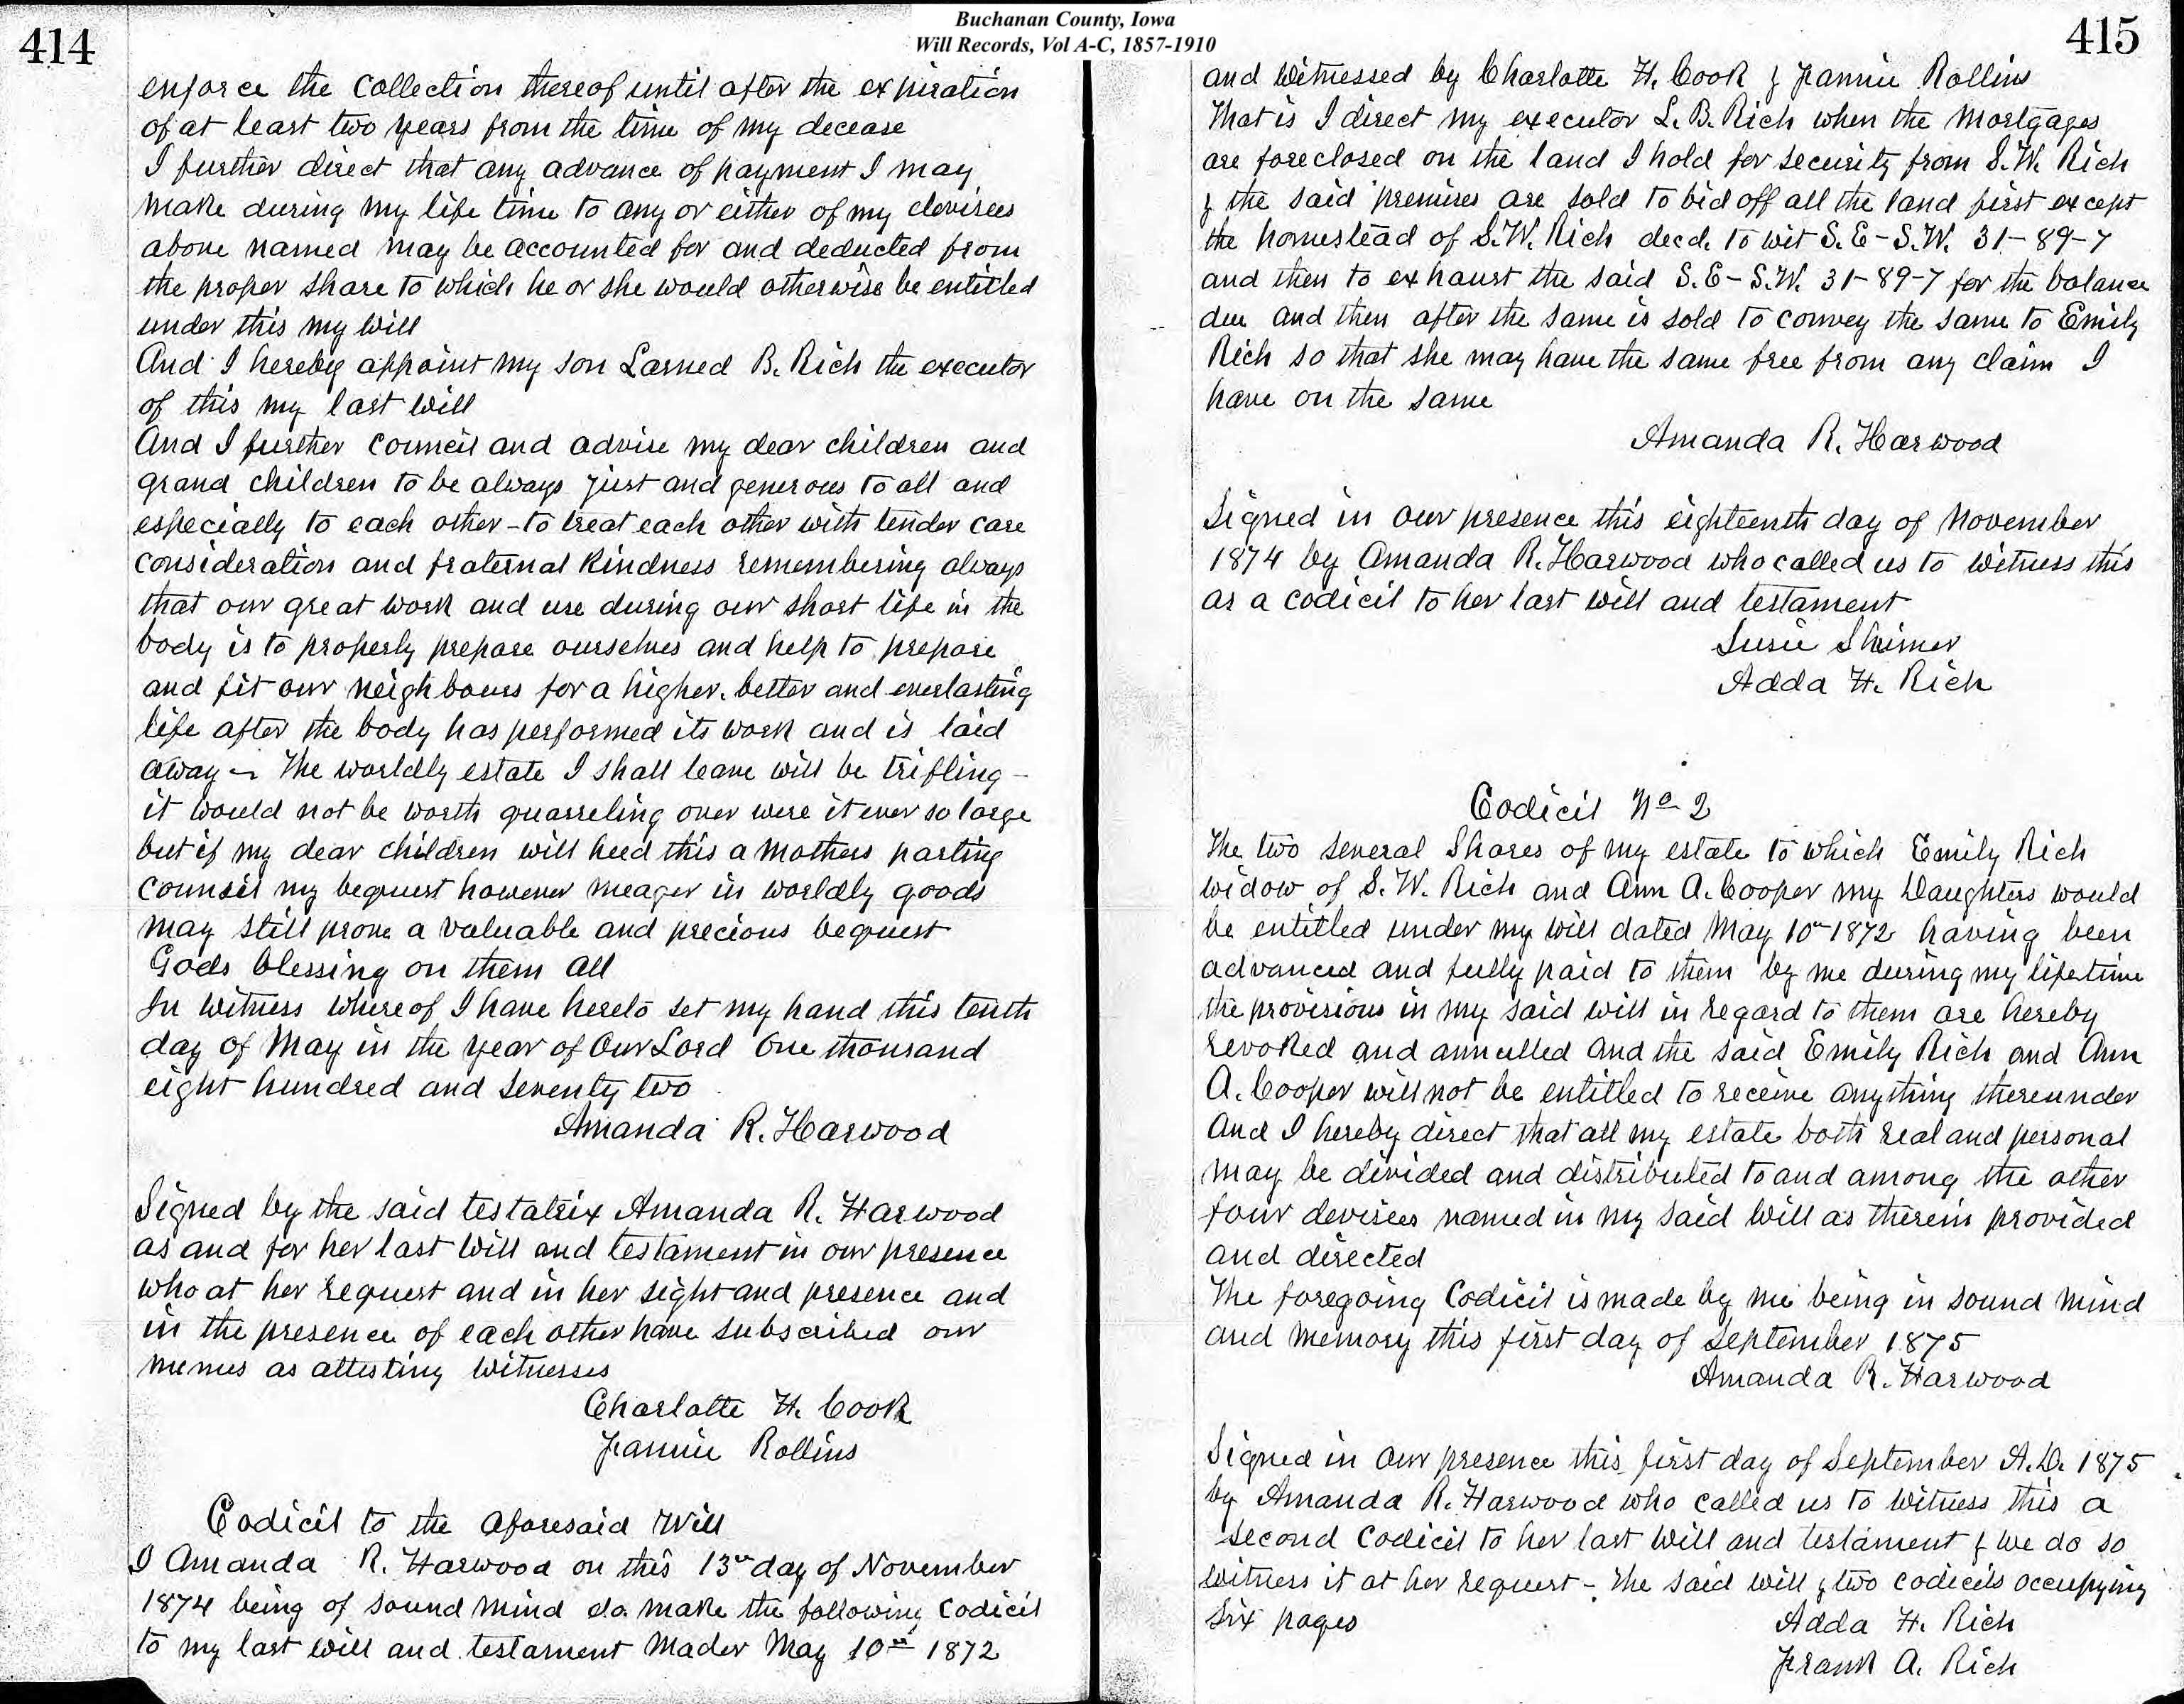 Buchanan County, Iowa
Will Records, Vol A-C, 1857-1910
414
enforce the Collection thereof until after the expiration
of at least two years from the time of my decease
I further direct that any advance of payment I may
make during my life time to any or either of my devisees
above named may be accounted for and deducted from
the proper share to which he or she would otherwise be entitled
under this my will
And I hereby appoint my son Larned B. Rich the executor
of this my last will
And I further council and advise my dear children and
grand children to be always just and generous to all and
especially to each other - to treat each other with tender care
consideration and fraternal kindness remembering always
that our great work and use during our short life in the
body is to properly prepare ourselves and help to prepare
and fit our neighbours for a higher, better and everlasting
life after the body has performed its work and is laid
away - The worldly estate I shall leave will be trifling -
it would not be worth quarreling over were it ever so large
but if my dear children will heed this a mothers parting
council my bequest however meager in worldly goods
may still prove a valuable and precious bequest
Gods blessing on them all
In witness whereof I have hereto set my hand this tenth
day of May in the year of Our Lord One thousand
eight hundred and seventy two
Amanda R. Harwood
Signed by the said testatrix Amanda R. Harwood
as and for her last will and testament in our presence
who at her request and in her sight and presence and
in the presence of each other have subscribed our
menus as attesting witnesses
Charlotte H. Cook
Fannie Rollins
Codicil to the aforesaid Will
I Amanda R. Harwood on this 13th day of November
1874 being of sound mind do make the following Codicil
to my last will and testament Mader May 10th 1872
415
and witnessed by Charlotte H. Cook & Fannie Rollins
That is I direct my executor L. B. Rich when the mortgages
are foreclosed on the land I hold for security from S. W. Rich
& the said premises are sold to bid off all the land first except
the homestead of S. W. Rich decd. to wit S. E - S.W. 31-89-7
and then to exhaust the said S. E - S.W. 31-89-7 for the balance
due and then after the same is sold to convey the same to Emily
Rich so that she may have the same free from any claim I
have on the same
Amanda R. Harwood
Signed in our presence this eighteenth day of November
1874 by Amanda R. Harwood who called us to witness this
as a codicil to her last will and testament
Susie Shimer
Adda H. Rich
Codicil No 2
The two several Shares of my estate to which Emily Rich
widow of S. W. Rich and Ann A. Cooper my Daughters would
be entitled under my will dated May 10th 1872 having been
advanced and fully paid to them by me during my lifetime
the provisions in my said will in regard to them are hereby
revoked and annulled and the said Emily Rich and Ann
A. Cooper will not be entitled to receive anything thereunder
And I hereby direct that all my estate both real and personal
may be divided and distributed to and among the other
four devisees named in my said will as therein provided
and directed
The foregoing Codicil is made by me being in sound mind
and memory this first day of September 1875
Amanda R. Harwood
Signed in our presence this first day of September A.D. 1875
by Amanda R. Harwood who called us to witness this a
second codicil to her last will and testament & we do so
witness it at her request - The said will & two codicils occupying
six pages
Adda H. Rich
Frank A. Rich